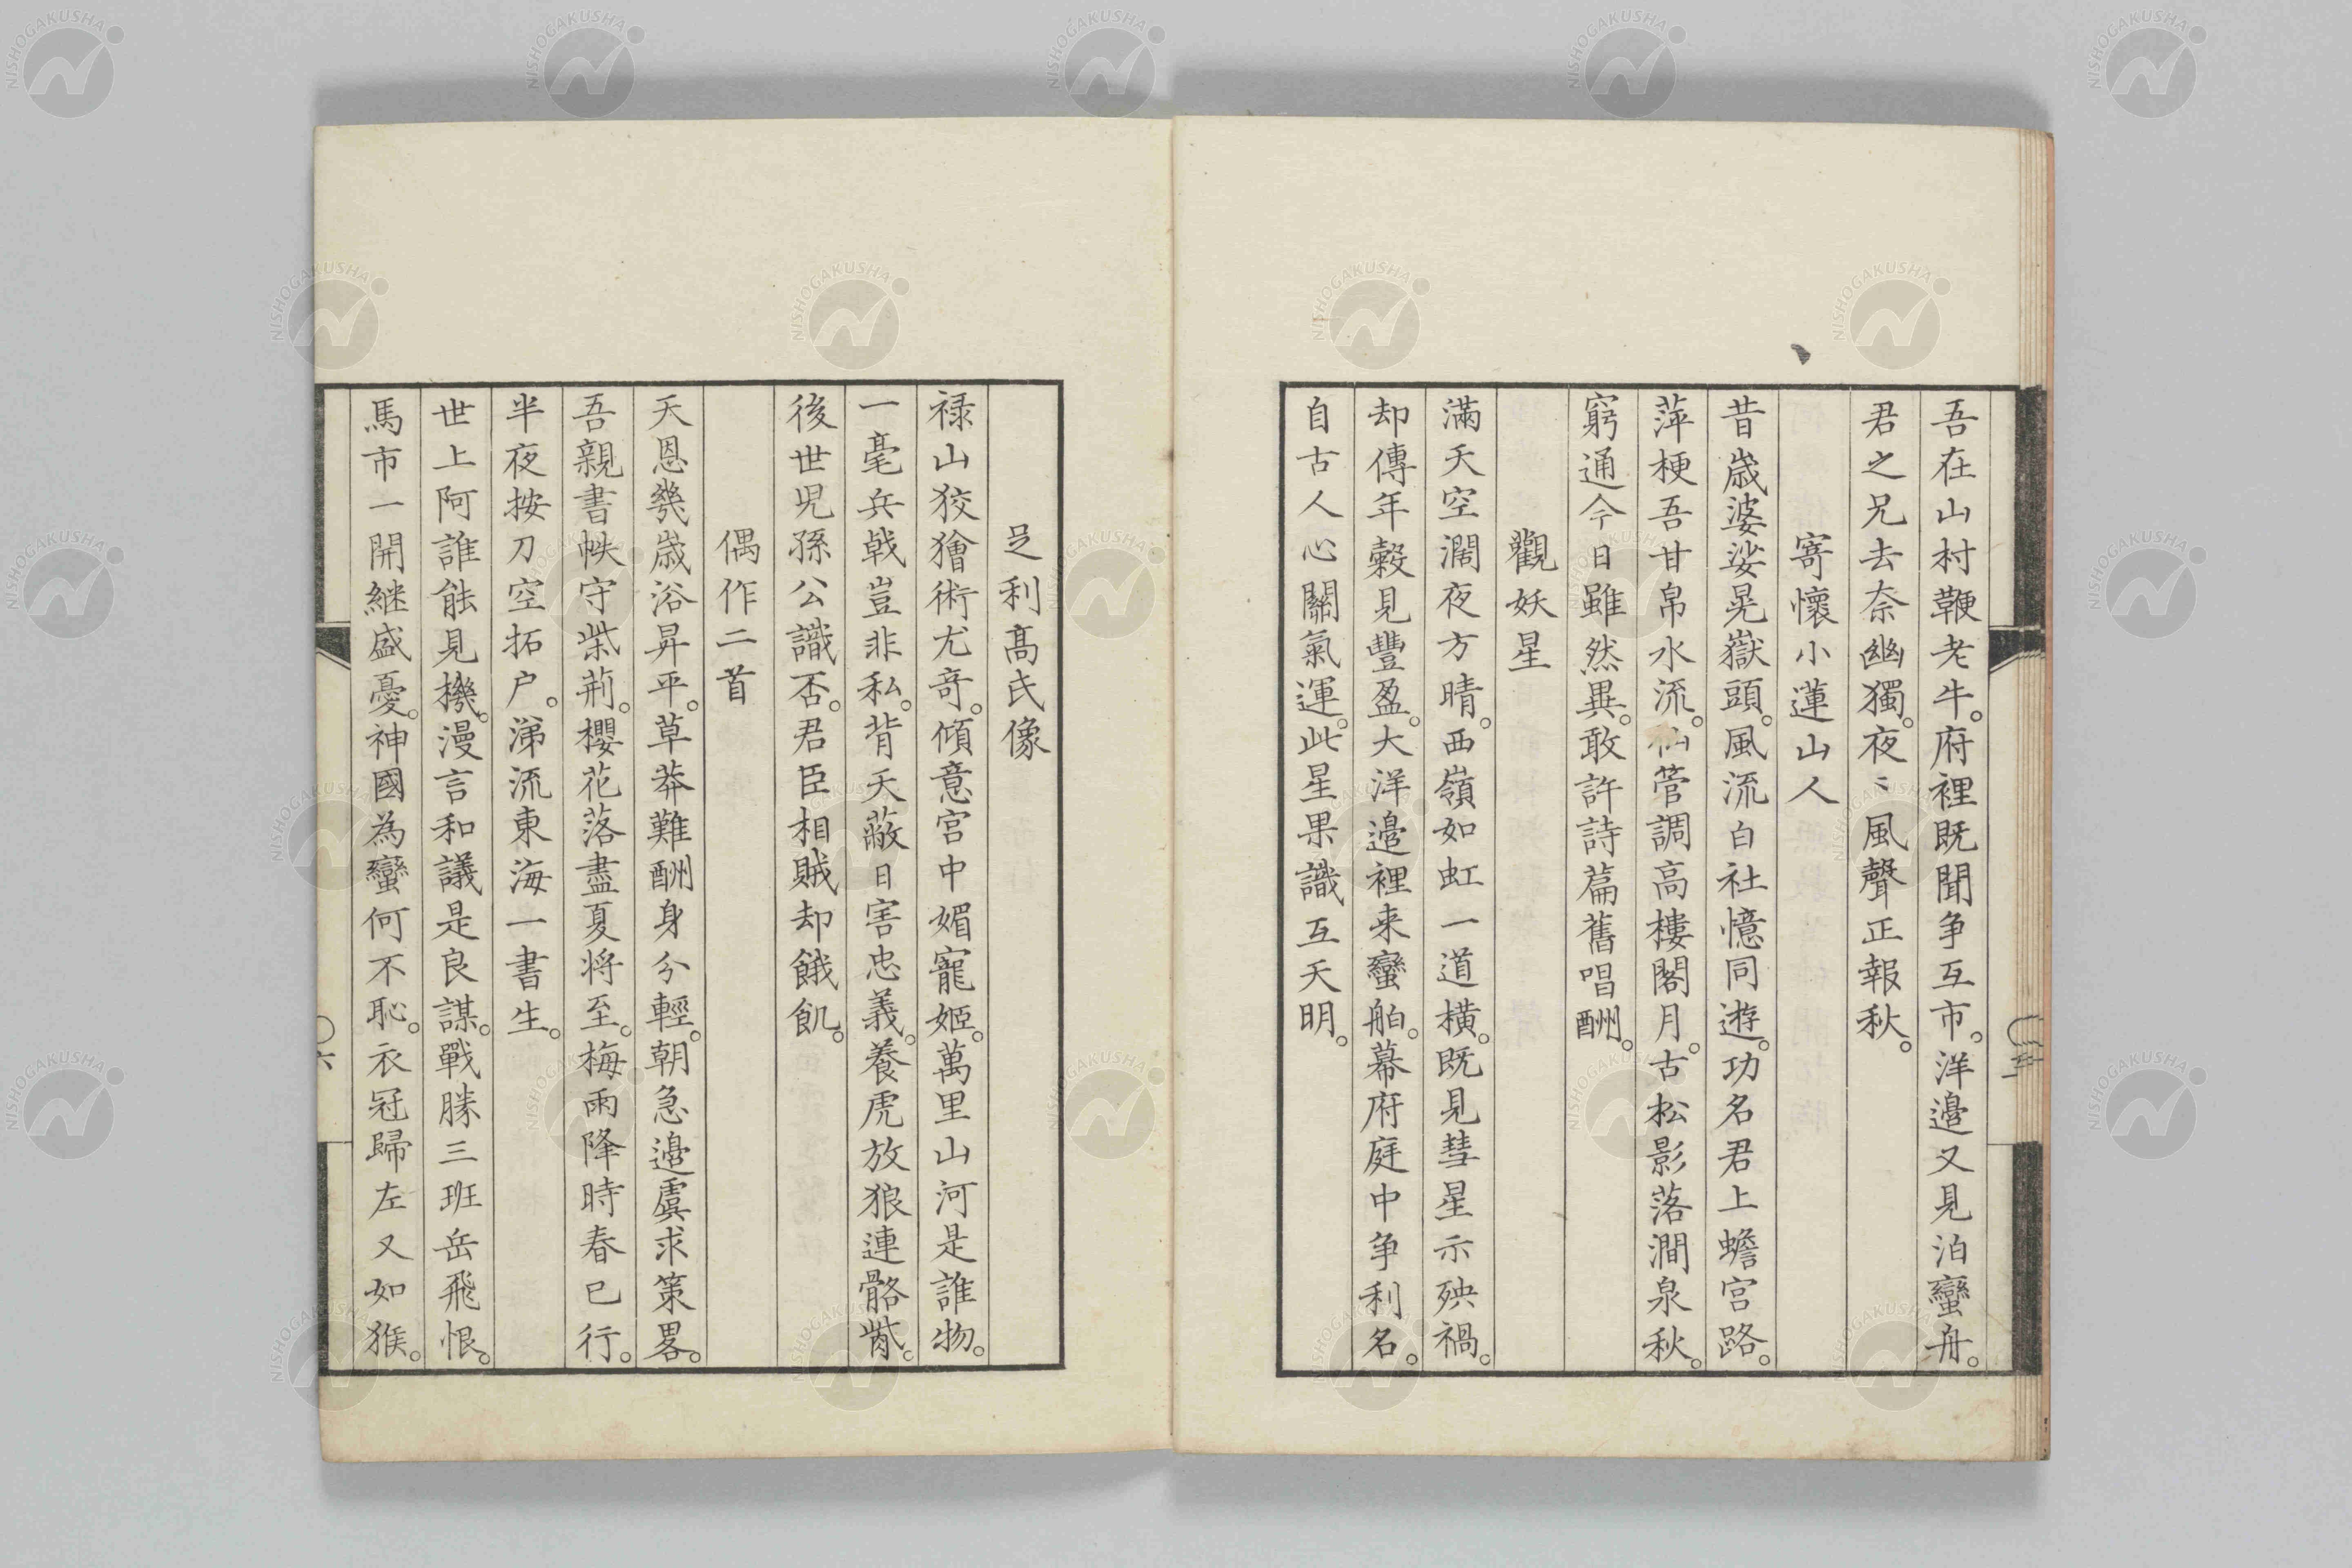 吾在山村鞭老牛。府裡既聞争互市。洋邉又見泊蠻舟。
君之兄去奈幽獨。夜〻風聲正報秋。
寄懷小蓮山人
昔嵗婆娑晃嶽頭。風流白社憶同遊。功名君上蟾宮路。
萍梗吾甘帛水流。仙管調高樓閣月。古松影落澗泉秋。
窮通今日雖然異。敢許詩篇舊唱酬。
觀妖星
滿天空濶夜方晴。西嶺如虹一道横。既見彗星示殃禍。
却傳年穀見豐盈。大洋邉裡来蠻舶。幕府庭中争利名。
自古人心關氣運。此星果識互天明。
五
足利髙氏像
禄山狡獪術尤奇。傾意宮中媚寵姬。萬里山河是誰物。
一毫兵戟豈非私。背天蔽日害忠義。養虎放狼連骼胔。
後世児孫公識否。君臣相賊却餓飢。
偶作二首
天恩幾嵗浴昇平。草莽難酬身分輕。朝急邉虞求策畧。
吾親書帙守柴荊。櫻花落盡夏将至。梅雨降時春已行。
半夜按刀空拓户。涕流東海一書生。
世上阿誰能見機。漫言和議是良謀。戰勝三班岳飛恨。
馬市一開継盛憂。神國為蠻何不恥。衣冠歸左又如猴。
六
NISHOGAKUSHA